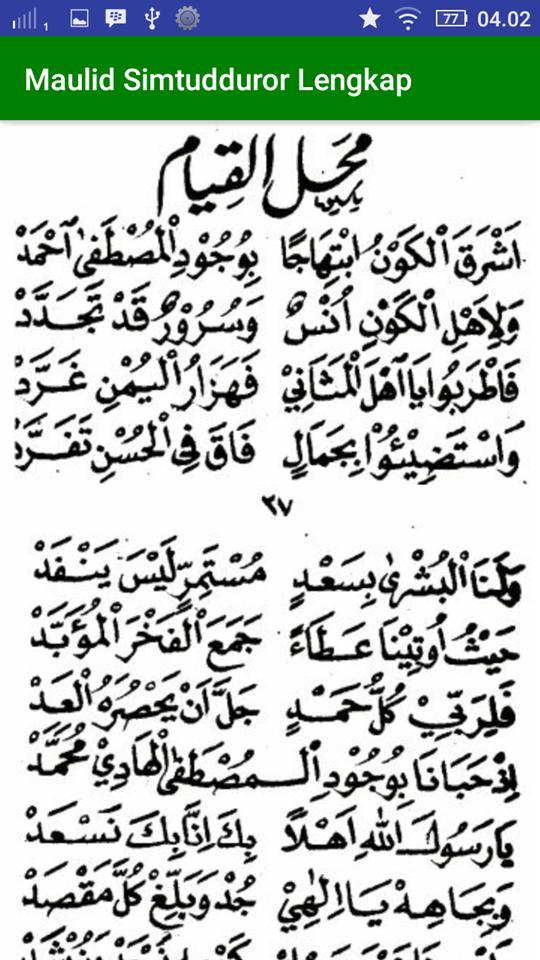 1 77 04.02
Maulid Simtudduror Lengkap
مَحَلُّ القِيَام
اَشْرَقَ الْكَوْنُ ابْتِهَاجًا بِوُجُودِ الْمُصْطَفَىٰ احْمَدْ
وَلِاَهْلِ الْكَوْنِ اُنْسٌ وَسُرُورٌ قَدْ تَجَدَّدْ
فَاطْرَبُوا يَا اَهْلَ الْمَثَانِيْ فَهَزَارُ الْيُمْنِ غَرَّدْ
وَاسْتَضِيْئُوْا بِجَمَالٍ فَاقَ فِى الْحُسْنِ تَفَرَّدْ
٢٧
وَلَنَا الْبُشْرٰى بِسَعْدٍ مُسْتَمِرٍّ لَيْسَ يَنْفَدْ
حَيْثُ اُوتِيْنَا عَطَاءً جَمَعَ الْفَخْرَ الْمُؤَبَّدْ
فَلِرَبِّيْ كُلُّ حَمْدٍ جَلَّ اَنْ يَحْصُرَهُ الْعَدْ
اِذْ حَبَانَا بِوُجُودِ الْمُصْطَفَى الْهَادِيْ مُحَمَّدْ
يَا رَسُولَ اللهِ اَهْلًا بِكَ اِنَّا بِكَ نَسْعَدْ
وَبِجَاهِهْ يَا اِلٰهِيْ جُدْ وَبَلِّغْ كُلَّ مَقْصَدْ